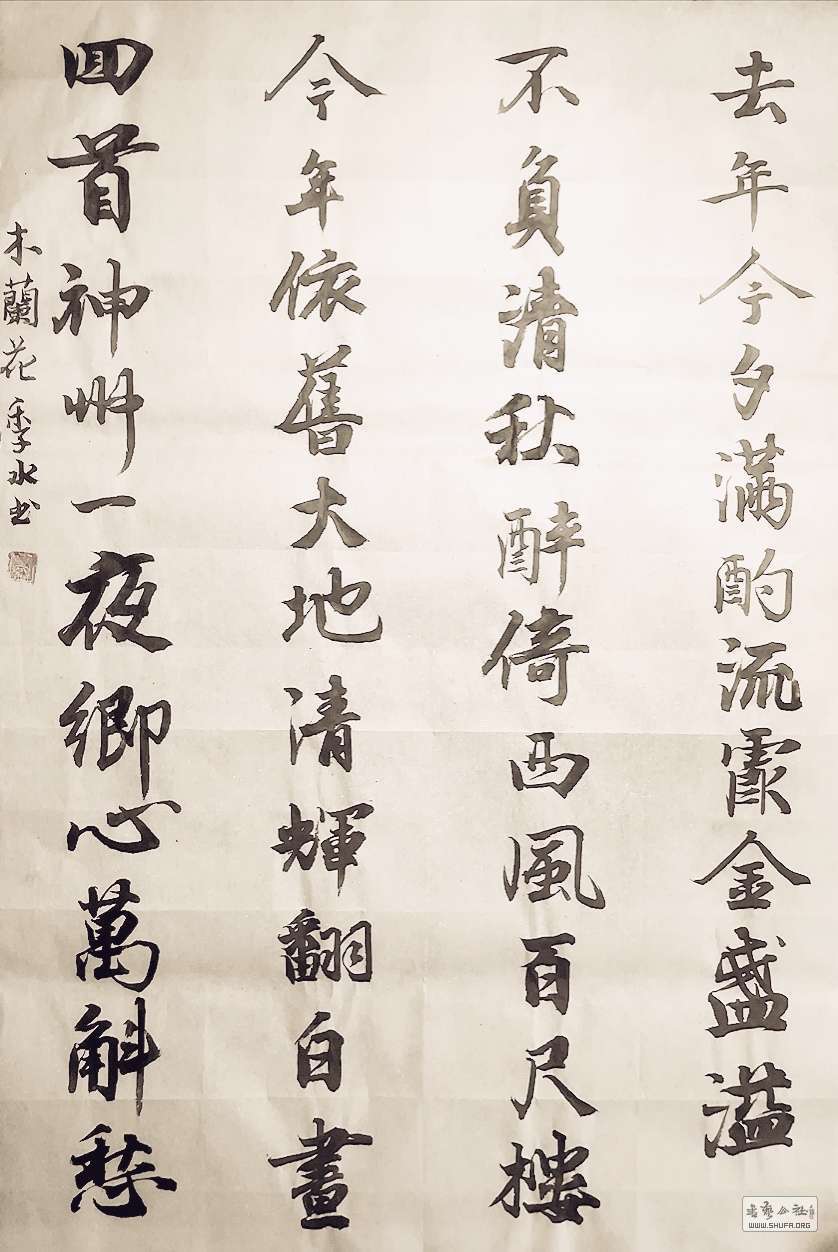 去年今夕滿酌流霞金盞溢
不負清秋醉倚西風百尺樓
今年依舊大地清輝翻白晝
回首神州一夜鄉心萬斛愁
木蘭花 季水书
書藝公社
WWW.SHUFA.ORG